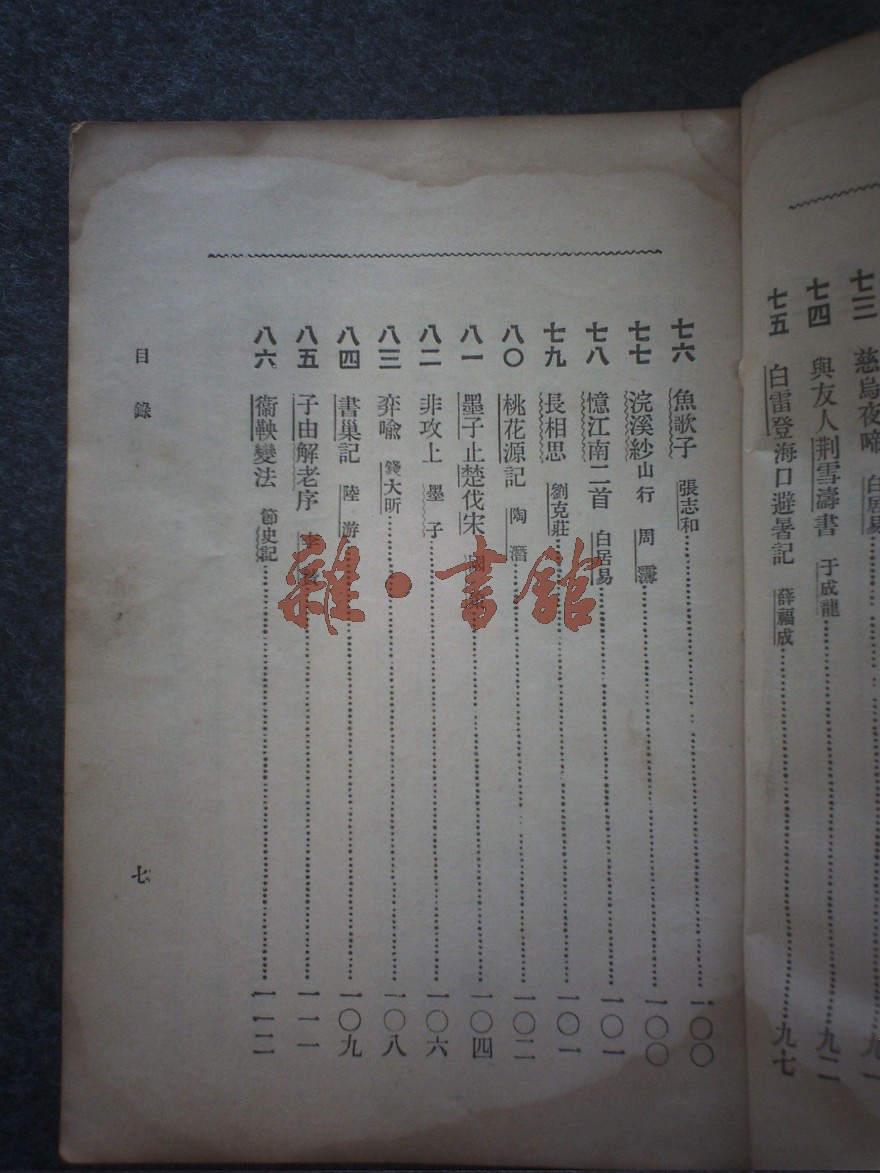 七三 慈烏夜啼 白居易
七四 與友人荆雪濤書 于成龍 九二
七五 白雷登海口避暑記 薛福成 九七
七六 魚歌子 張志和 一〇〇
七七 浣溪紗 山行 周 一〇〇
七八 憶江南二首 白居易 一〇一
七九 長相思 劉克莊 一〇一
八〇 桃花源記 陶潛 一〇二
八一 墨子止楚伐宋 一〇四
八二 非攻上 墨子 一〇六
八三 弈喻 錢大昕 一〇八
八四 書巢記 陸游 一〇九
八五 子由解老序 一一一
八六 衞鞅變法 節史記 一一二
目錄
七
雜·書館